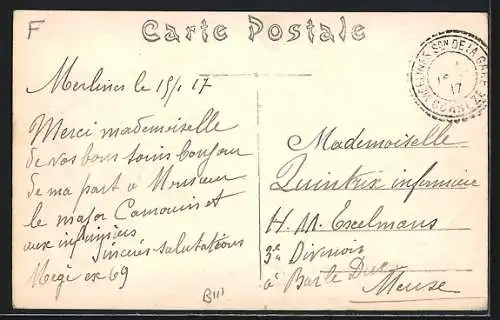 F
Carte Postale
MERLINES Son DE LA GARE
17
CORRÈZE
Merlines le 15/1 17
Merci mademoiselle
de vos bons soins bonjour
de ma part à Monsieur
le major Camouin et
aux infirmiers
Sincères salutations
Megi ex 69
Mademoiselle
Quintrix infirmière
H. M. Excelmans
3e Division
à Bar le Duc
Meuse
B111